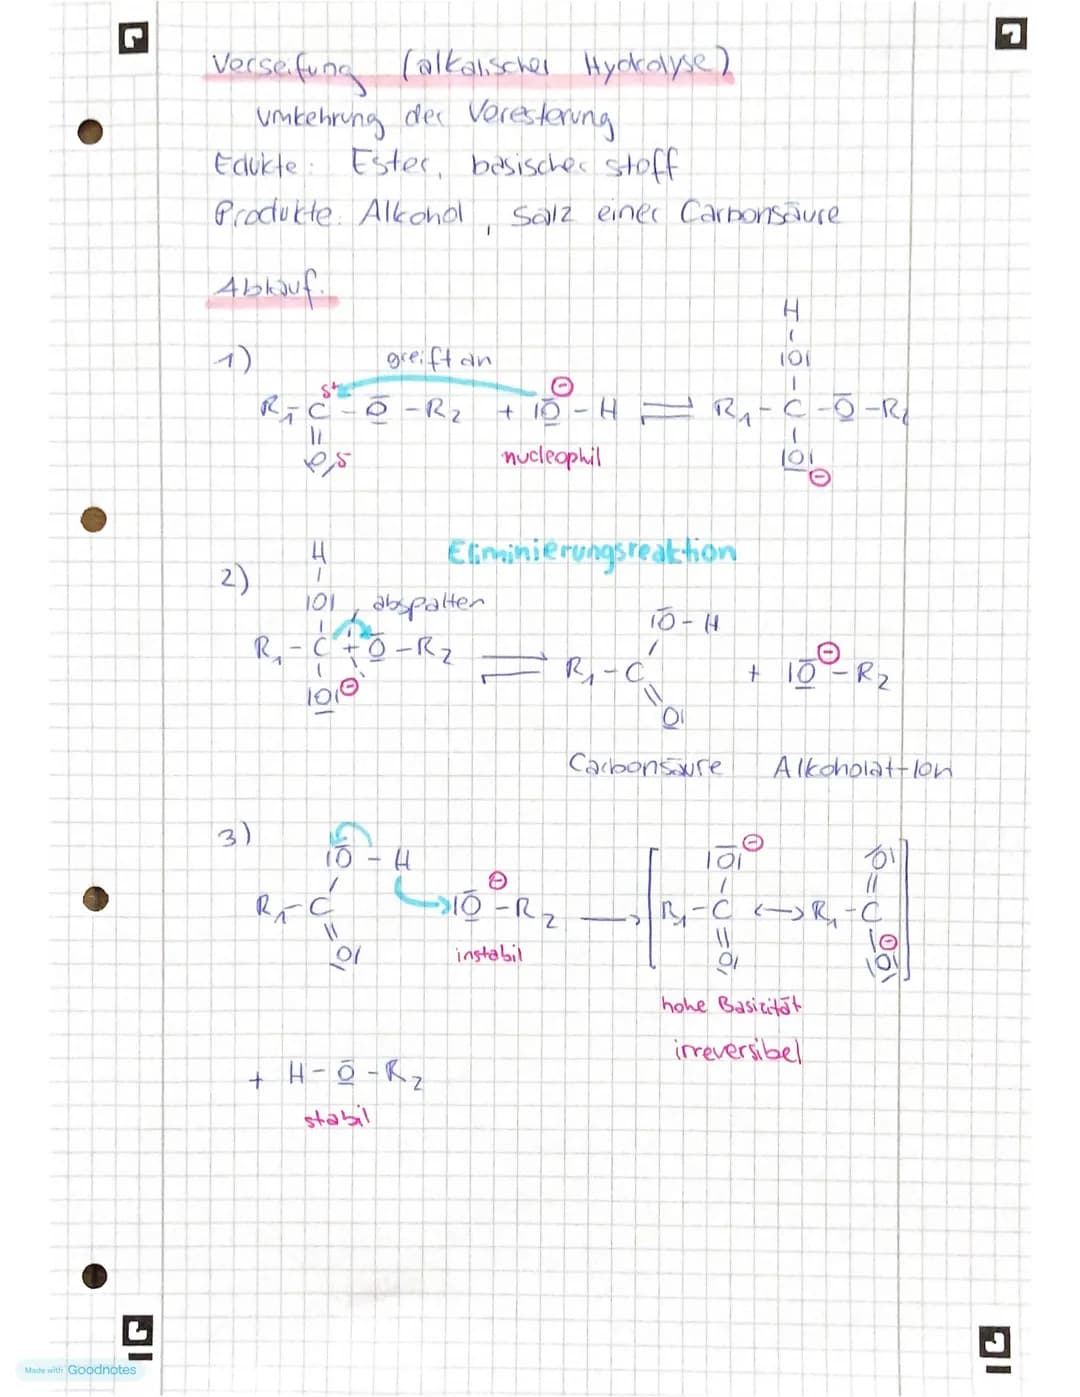 Verseifung (alkalischer Hydrolyse)
Umkehrung der Veresterung
Edukte: Ester, basischer Stoff
Produkte: Alkohol, Salz einer Carbonsäure
Ablauf:
H
1) greift an |O|
R₁-C-O̅-R₂ + |O̅-H ⇌ R₁-C-O̅-R₂
δ+ ⊖
|| |O| ⊖
nucleophil
H Eliminierungsreaktion
2)
|O| abspalten
|O̅-H
R₁-C-O̅-R₂ ⇌ R₁-C + |O̅-R₂
|O| ⊖ || O| ⊖
Carbonsäure Alkoholat-Ion
3)
|O̅-H |O̅| ⊖ O|
R₁-C |O̅-R₂ → [R₁-C ↔ R₁-C]
|| O| ⊖ || O| |O| ⊖
instabil
hohe Basizität
irreversibel
+ H-O̅-R₂
stabil
Made with Goodnotes